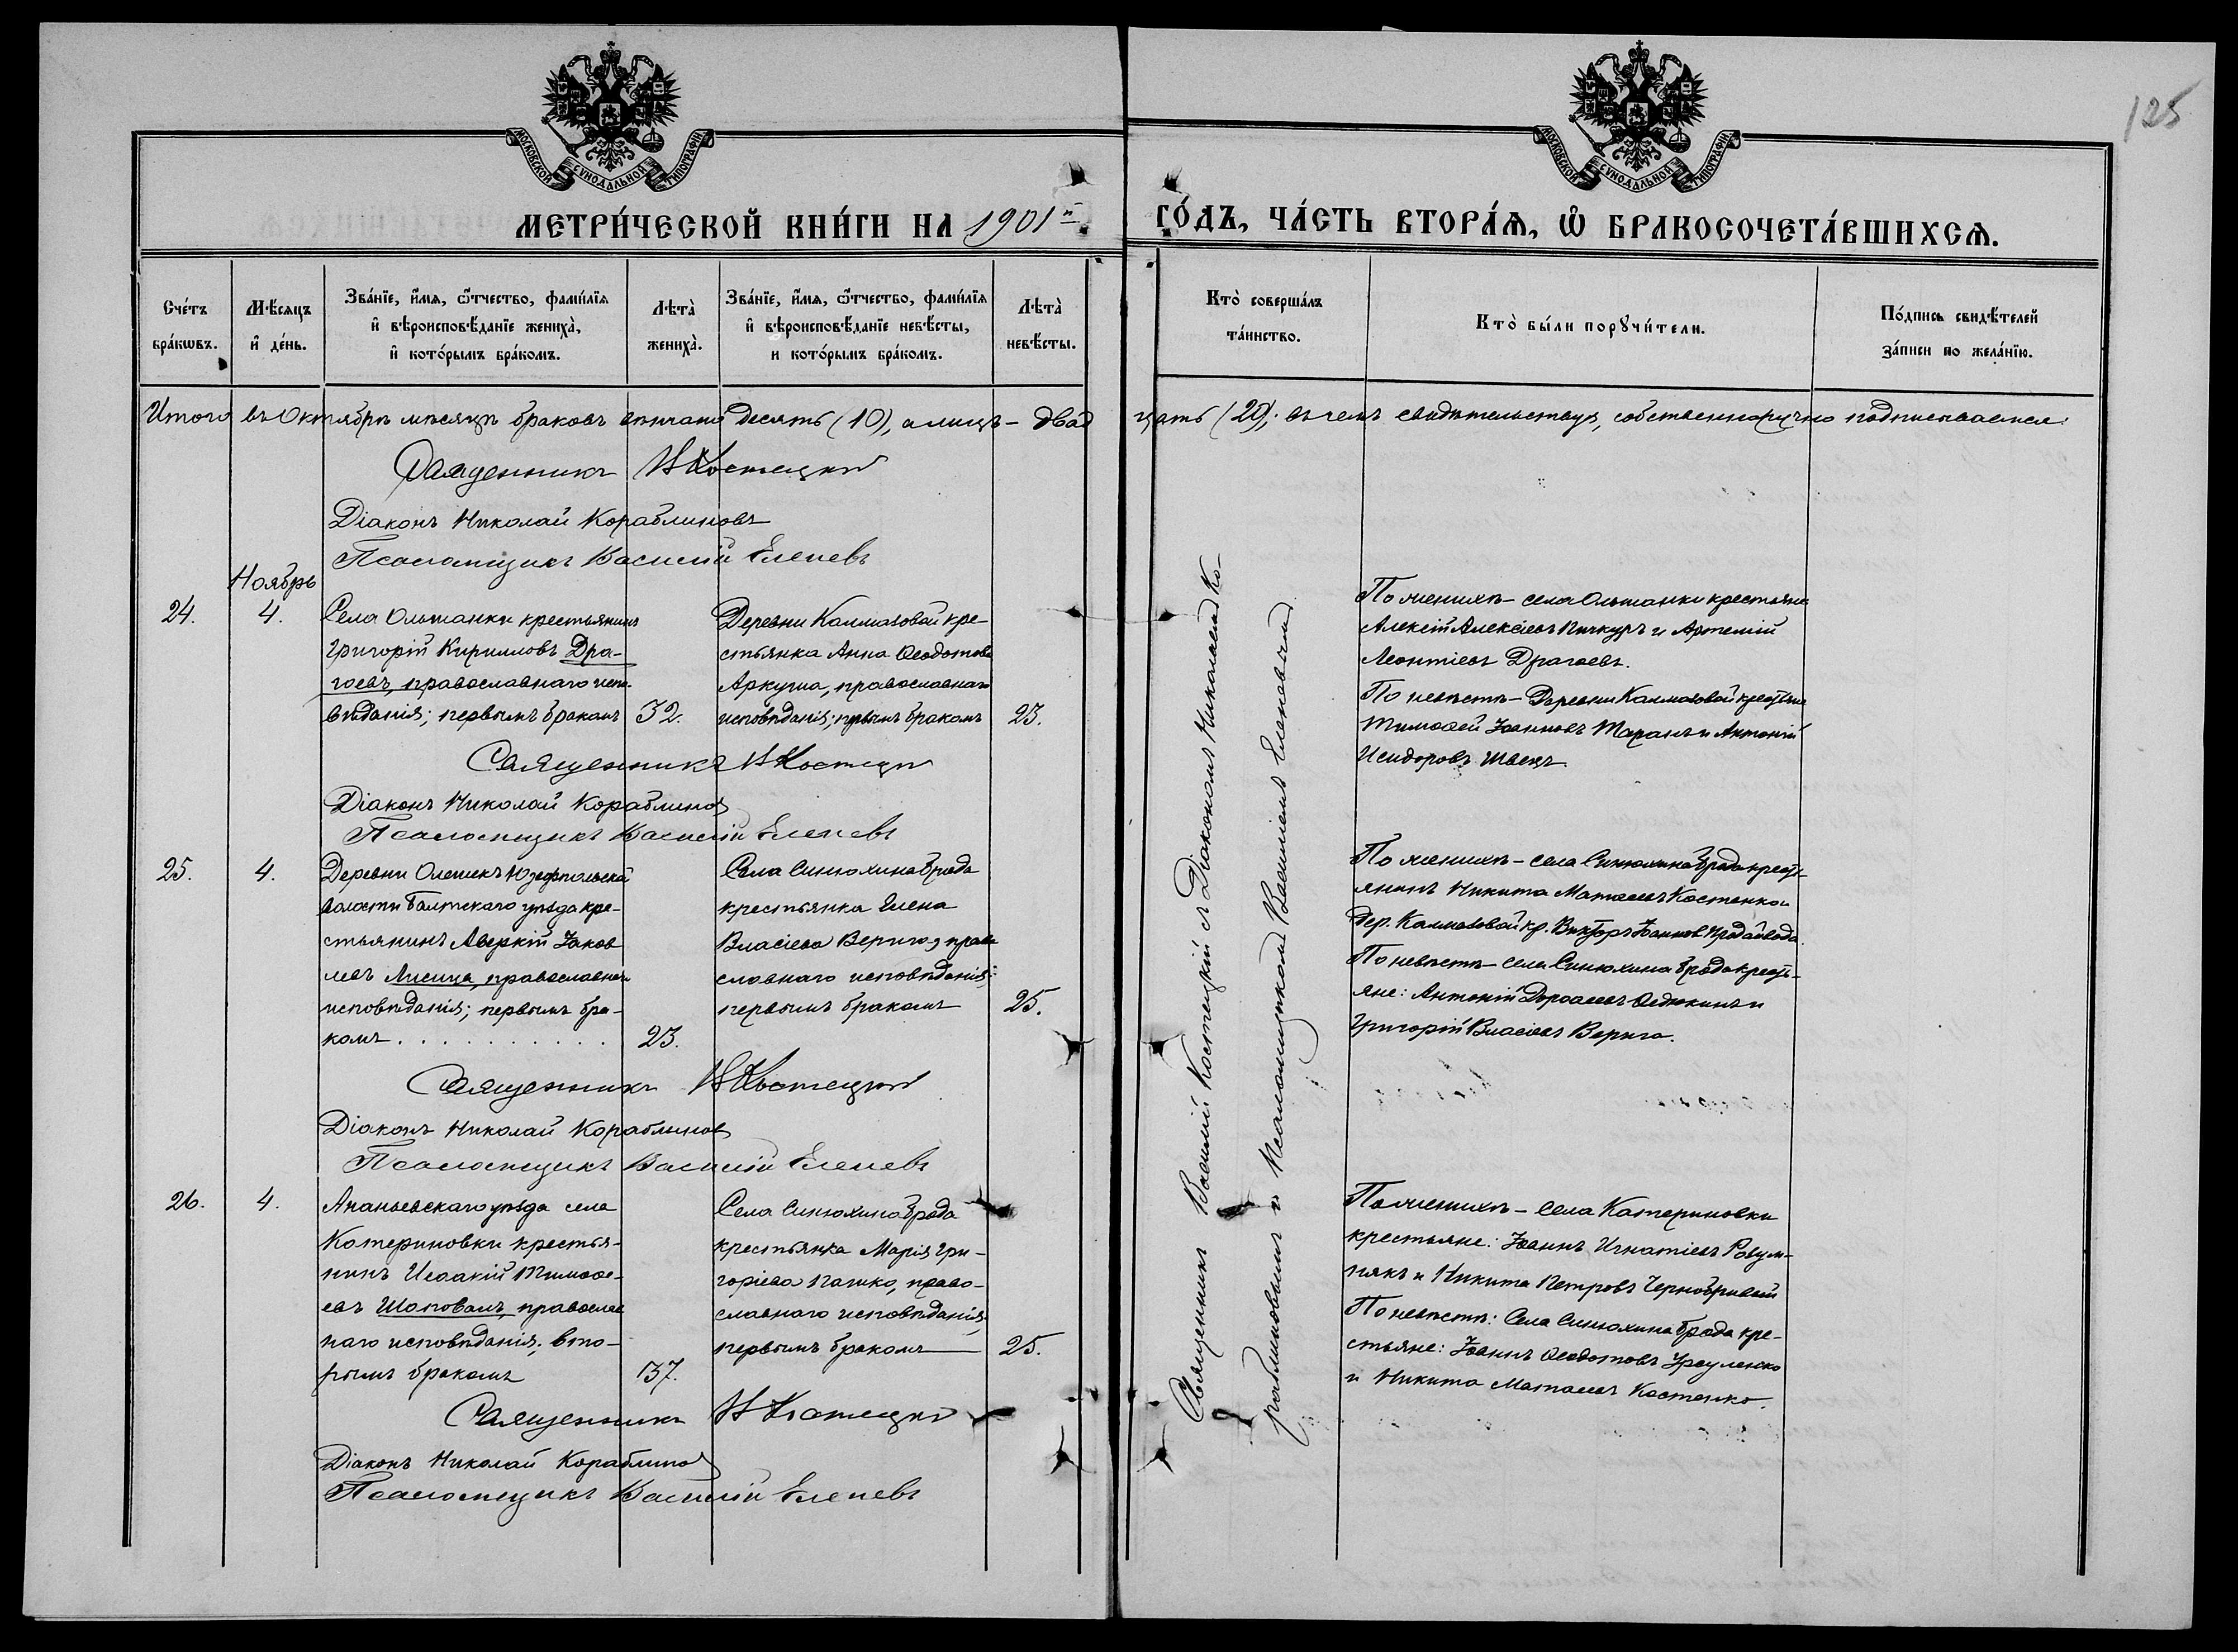 125
МОСКОВСКОЙ СѴНОДАЛЬНОЙ ТИПОГРАФІИ
МОСКОВСКОЙ СѴНОДАЛЬНОЙ ТИПОГРАФІИ
МЕТРИ́ЧЕСКОЙ КНИ́ГИ НА 1901й
ГО́ДЪ, ЧА́СТЬ ВТОРА́Ѧ, Ѽ БРАКОСОЧЕТА́ВШИХСѦ.
Сче́тъ бра́кѡвъ.
Мѣ́сѧцъ и҆ де́нь.
Зва́нїе, и҆́мѧ, ѻ҆́тчество, фами́лїѧ и҆ вѣроисповѣ́данїе жениха̀, и҆ кото́рымъ бра́комъ.
Лѣта̀ жениха̀.
Зва́нїе, и҆́мѧ, ѻ҆́тчество, фами́лїѧ и҆ вѣроисповѣ́данїе невѣ́сты, и кото́рымъ бра́комъ.
Лѣта̀ невѣ́сты.
Кто̀ соверша́лъ та́инство.
Кто̀ бы́ли порꙋчи́тели.
По́дпись свидѣ́телей за́писи по жела́нїю.
Итого въ Октябрѣ мѣсяцѣ браковъ вѣнчано десять (10), а лицъ – двад
цать (20); въ чемъ свидѣтельствуя, собственноручно подписываемся:
Священникъ В Костецкій
Діаконъ Николай Кораблиновъ
Псаломщикъ Василій Еленевъ
Ноябрь
24.
4.
Села Ольшанки крестьянинъ
Григорій Кирилловъ Дра-
гоевъ, православнаго испо-
вѣданія; первымъ бракомъ
32.
Деревни Калмазовой кре-
стьянка Анна Ѳеодотова
Аркуша, православнаго
исповѣданія; первымъ бракомъ
23.
По женихѣ – села Ольшанки крестьяне
Алексій Алексіевъ Пичкуръ и Артемій
Леонтіевъ Драгоевъ.
По невѣстѣ – Деревни Калмазовой крестьяне
Тимоѳей Іоанновъ Таранъ и Антоній
Исидоровъ Швецъ.
Священникъ В Костецкій
Діаконъ Николай Кораблиновъ
Псаломщикъ Василій Еленевъ
25.
4.
Деревни Олешекъ Юзефпольской
волости Балтскаго уѣзда кре-
стьянинъ Аверкій Іаков-
левъ Лисица, православнаго
исповѣданія; первымъ бра-
комъ . . . . . . . . . .
23.
Села Синюхина брода
крестьянка Елена
Власіева Верига, право
славнаго исповѣданія;
первымъ бракомъ
25.
По женихѣ – села Синюхина брода кресть-
янинъ Никита Матѳеевъ Костенко и
дер. Калмазовой кр. Викторъ Іоанновъ
По невѣстѣ – села Синюхина брода кресть-
яне: Антоній Дороѳеевъ Ѳедюкинъ и
Григорій Власіевъ Верига.
Священникъ В Костецкій
Діаконъ Николай Кораблиновъ
Псаломщикъ Василій Еленевъ
26.
4.
Ананьевскаго уѣзда села
Катериновки крестья-
нинъ Исаакій Тимоѳе-
евъ Шаповалъ, православ
наго исповѣданія; вто-
рымъ бракомъ
37.
Села Синюхина брода
крестьянка Марія Гри-
горіева Пашко, право-
славнаго исповѣданія;
первымъ бракомъ
25.
По женихѣ – села Катериновки
крестьяне: Іоаннъ Игнатіевъ Розум-
някъ и Никита Петровъ Чернобривый
По невѣстѣ: Села Синюхина брода кре-
стьяне: Іоаннъ Ѳеодотовъ
и Никита Матѳеевъ Костенко.
Священникъ В Костецкій
Діаконъ Николай Кораблиновъ
Псаломщикъ Василій Еленевъ
Священникъ Василій Костецкій съ Діакономъ Николаемъ Ко-
раблиновымъ и Псаломщикомъ Василіемъ Еленевымъ